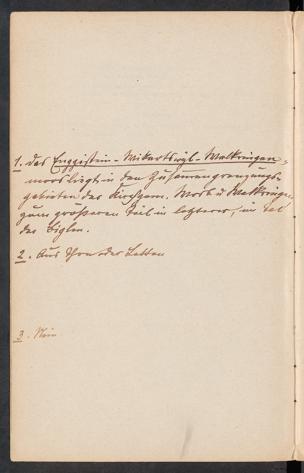 1. Das Enggistein-Wikartswyl-Walkringen-
moos liegt in den Zusammengrenzungs-
gebieten der Kirchgem. Worb u Walkringen,
zum grösseren Teil in letzterer, im Tal
der Biglen.
2. Aus Thon oder Letten
3. Nein